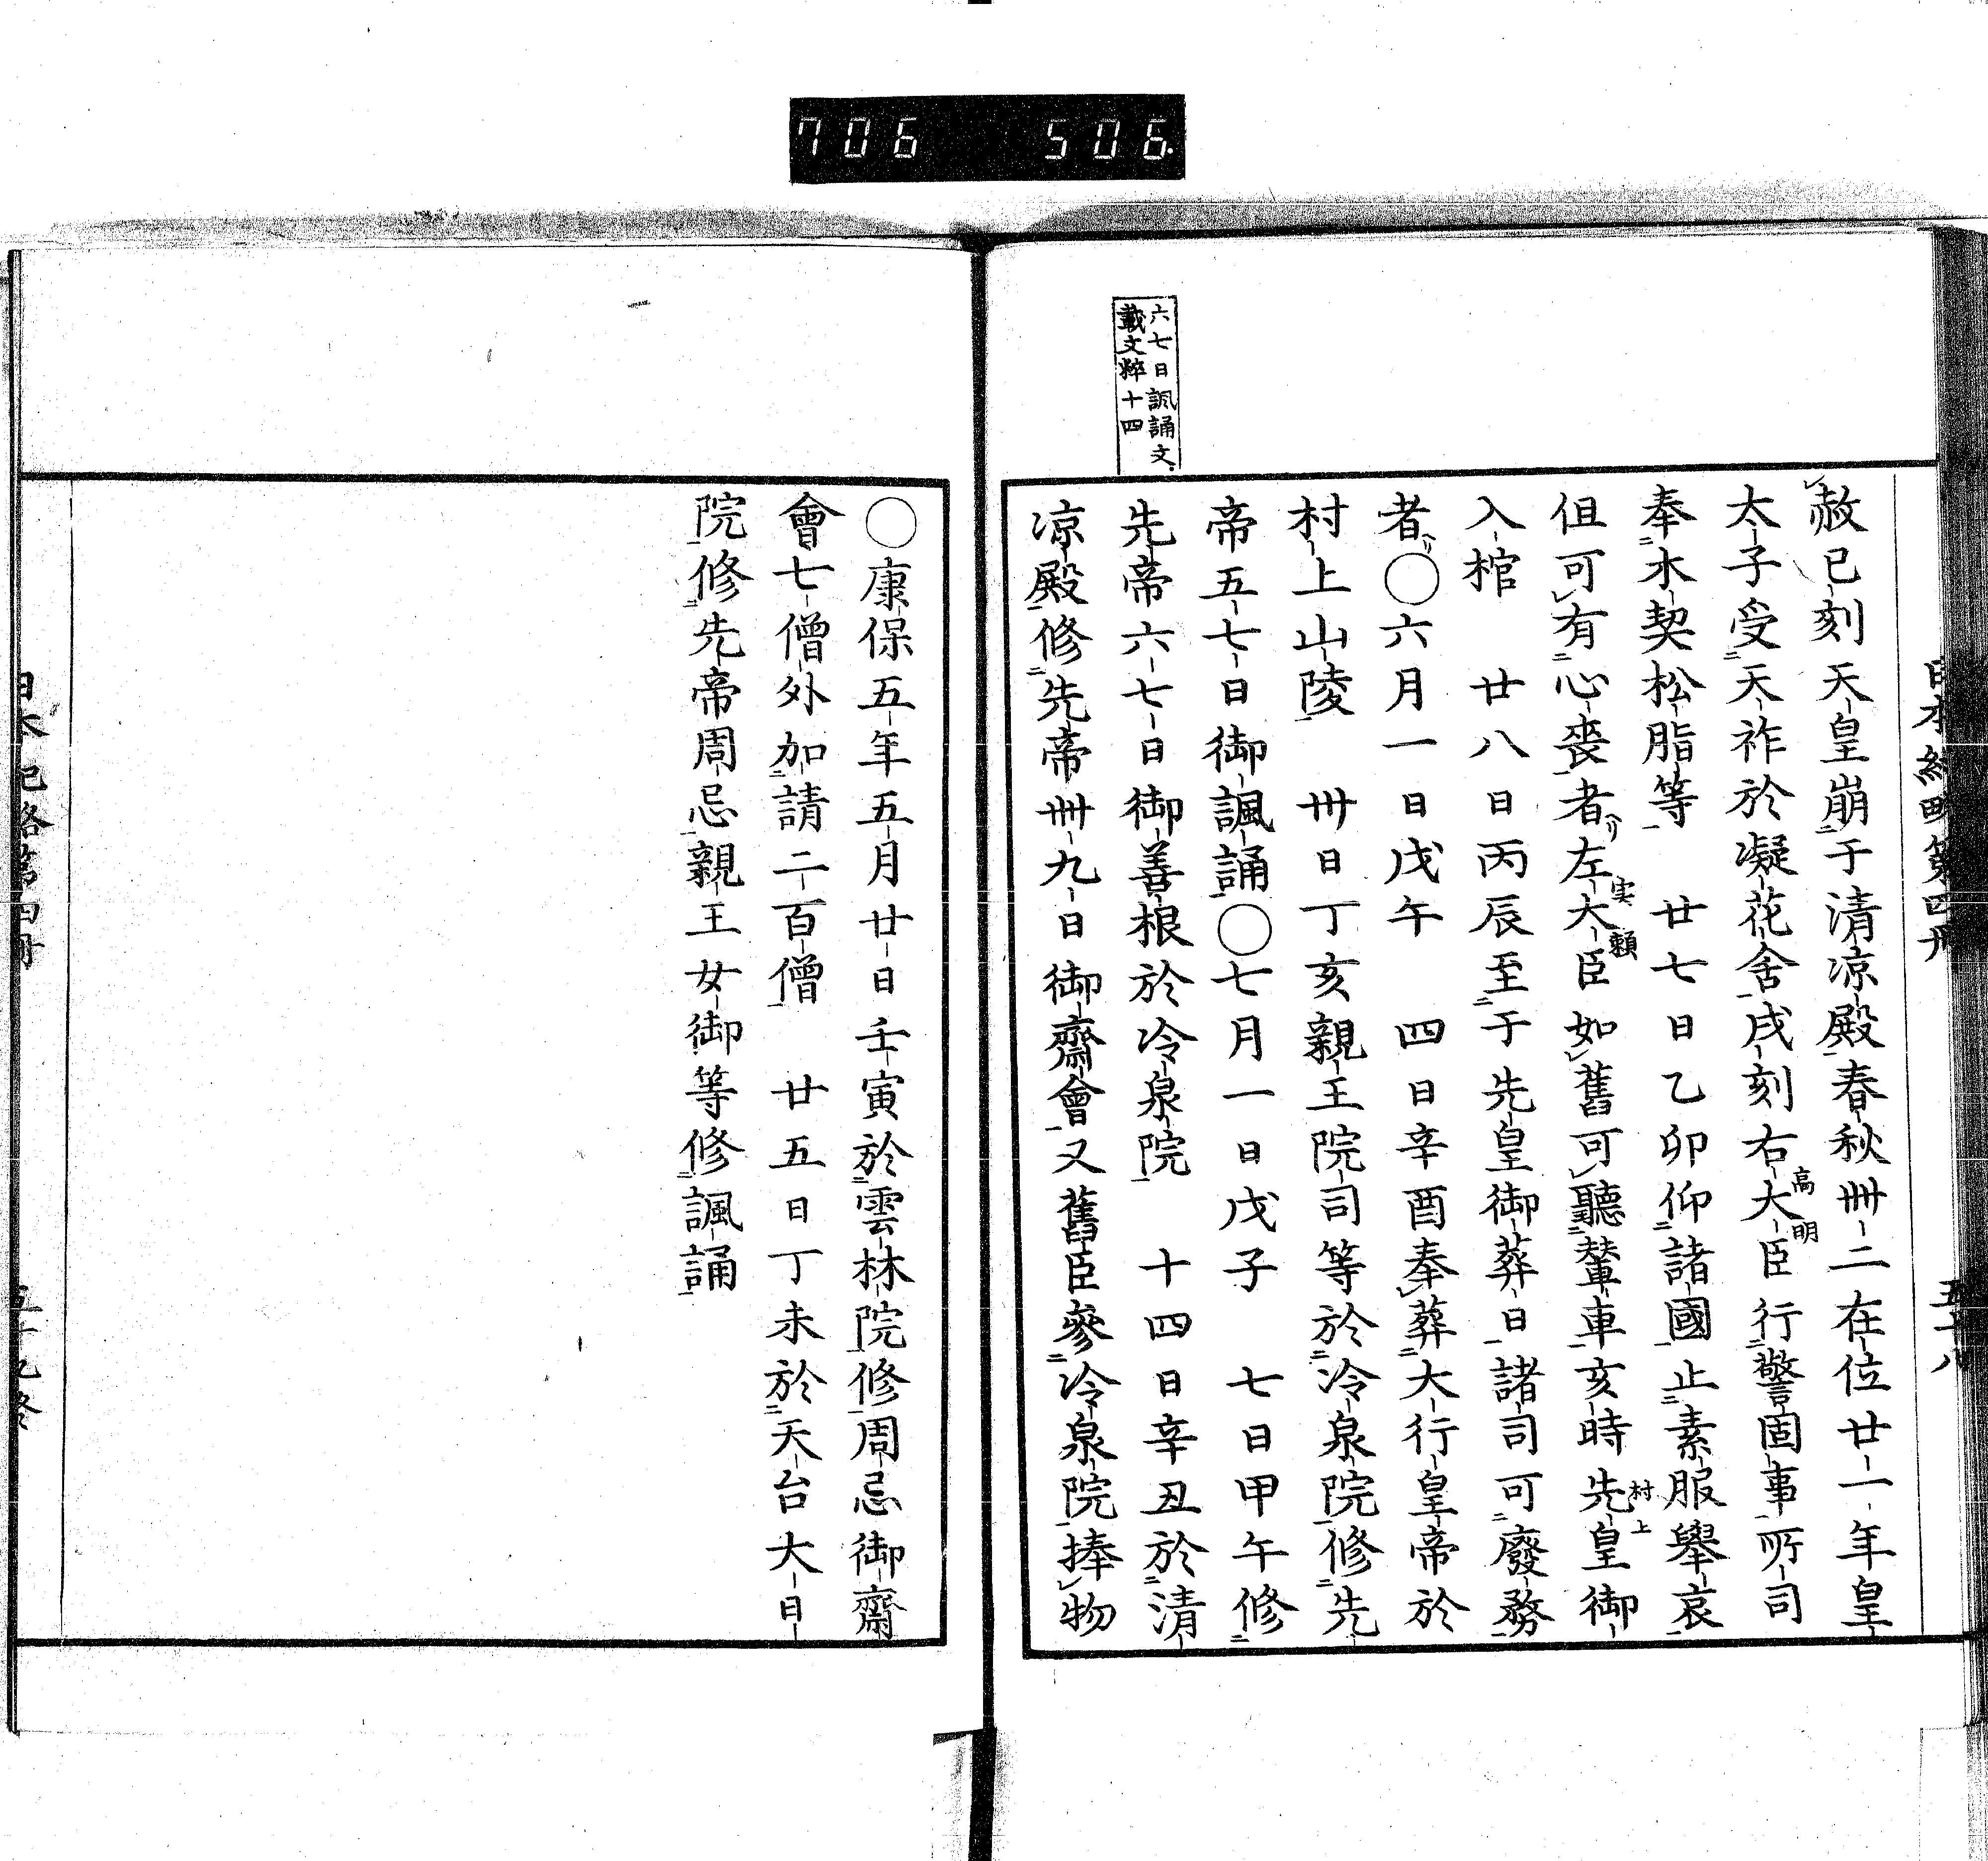 706 506
六七日諷誦文
載文粹十四
日本紀略第四册 五十八
赦巳刻天皇崩于清凉殿春秋卌二在位廿一年皇
太子受天祚於凝花舍戌刻右大臣行警固事所司
高明
奉水契松脂等 廿七日乙卯仰諸國止素服擧哀
但可有心喪者左大臣如舊可聽輦車亥時先皇御
実頼
村上
入棺 廿八日丙辰至于先皇御葬日諸司可廢務
者〇六月一日戊午 四日辛酉奉葬大行皇帝於
村上山陵 卅日丁亥親王院司等於冷泉院修先
帝五七日御諷誦〇七月一日戊子 七日甲午修
先帝六七日御善根於冷泉院 十四日辛丑於清
凉殿修先帝卌九日御齋會又舊臣參冷泉院捧物
〇康保五年五月廿日壬寅於雲林院修周忌御齋
會七僧外加請二百僧 廿五日丁未於天台大日
院修先帝周忌親王女御等修諷誦
日本紀略第四册 五十九終